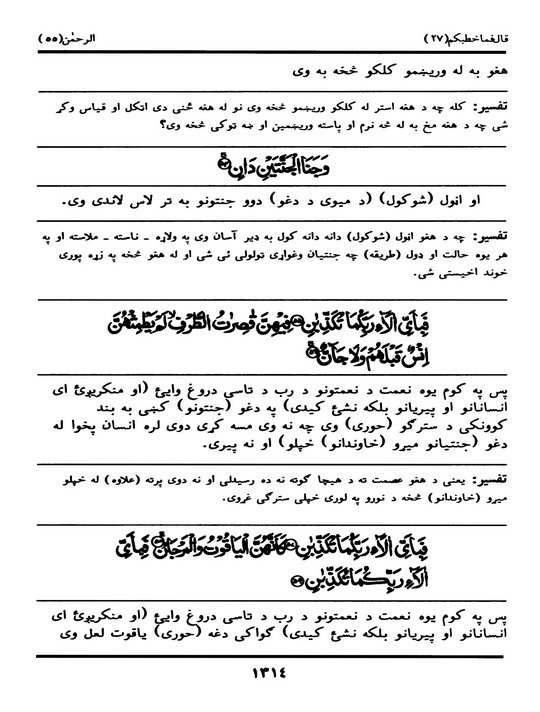 قال فما خطبكم (۲۷) الرحمٰن (۵۵)
هغو به له وریښمو کلکو څخه به وی
تفسیر: کله چه د هغه استر له کلکو وریښمو څخه وی نو له هغه ځنی دی اتکل او قیاس وکړ
شی چه د هغه مخ به له څه نرم او پاسته وریښمین او ښه توکی څخه وی؟
وَجَنَا الْجَنَّتَيْنِ دَانٍ
او اټول (شوکول) (د میوی د دغو) دوو جنتونو به تر لاس لاندی وی.
تفسیر: چه د هغو اټول (شوکول) دانه دانه کول به ډیر آسان وی په ولاړه ـ ناسته ـ ملاسته او په
هر یوه حالت او ډول (طریقه) چه جنتیان وغواړی ټولولی ئی شی او له هغو څخه په زړه پوری
خوند اخیستی شی.
فَبِأَيِّ آلَاءِ رَبِّكُمَا تُكَذِّبٰنِ فِيهِنَّ قٰصِرٰتُ الطَّرْفِ لَمْ يَطْمِثْهُنَّ
إِنْسٌ قَبْلَهُمْ وَلَا جَآنٌّ
پس په کوم یوه نعمت د نعمتونو د رب د تاسی دروغ وایئ (او منکریږئ ای
انسانانو او پیریانو بلکه نشئ کیدی) په دغو (جنتونو) کښی به بند
کوونکی د سترګو (حوری) وی چه نه وی مسه کړی دوی لره انسان پخوا له
دغو (جنتیانو میړو (خاوندانو) خپلو) او نه پیری.
تفسیر: یعنی د هغو عصمت ته د هیچا ګوته نه ده رسیدلی او نه دوی پرته (علاوه) له خپلو
میړو (خاوندانو) څخه د نورو په لوری خپلی سترګی غړوی.
فَبِأَيِّ آلَاءِ رَبِّكُمَا تُكَذِّبٰنِ كَأَنَّهُنَّ الْيَاقُوتُ وَالْمَرْجَانُ فَبِأَيِّ
آلَاءِ رَبِّكُمَا تُكَذِّبٰنِ
پس په کوم یوه نعمت د نعمتونو د رب د تاسی دروغ وایئ (او منکریږئ ای
انسانانو او پیریانو بلکه نشئ کیدی) ګواکی دغه (حوری) یاقوت لعل وی
۱۳۱٤